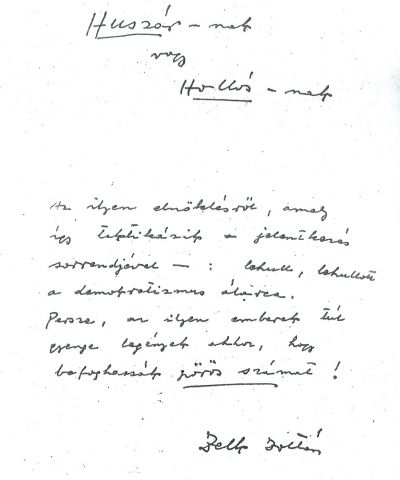 Huszár - nak
vagy
Hollós - nak
Az ilyen elnöklésről, amely
így taktikázik a jelentkezés
sorrendjével — : lehull, lehullott
a demokratizmus álarca.
Persze, az ilyen emberek túl
gyenge legények ahhoz, hogy
befoghassák pörös számat!
Zelk Zoltán